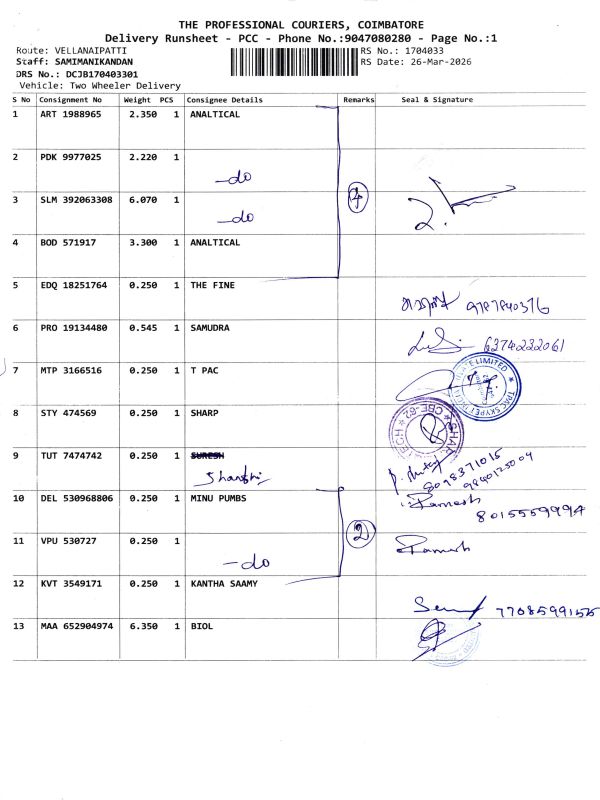 THE PROFESSIONAL COURIERS, COIMBATORE
Delivery Runsheet - PCC - Phone No.:9047080280 - Page No.:1
Route: VELLANAIPATTI
RS No.: 1704033
Staff: SAMIMANIKANDAN
RS Date: 26-Mar-2026
DRS No.: DCJB170403301
Vehicle: Two Wheeler Delivery
S No Consignment No Weight PCS Consignee Details Remarks Seal & Signature
1 ART 1988965 2.350 1 ANALTICAL
2 PDK 9977025 2.220 1 -do
3 SLM 392063308 6.070 1 -do
4
4 BOD 571917 3.300 1 ANALTICAL
5 EDQ 18251764 0.250 1 THE FINE 9787840376
6 PRO 19134480 0.545 1 SAMUDRA 6374232061
7 MTP 3166516 0.250 1 T PAC
8 STY 474569 0.250 1 SHARP
9 TUT 7474742 0.250 1 SURESH
8098371015
9840125009
10 DEL 530968806 0.250 1 MINU PUMBS Ramesh
8015559994
11 VPU 530727 0.250 1 -do 2 Ramesh
12 KVT 3549171 0.250 1 KANTHA SAAMY
13 MAA 652904974 6.350 1 BIOL